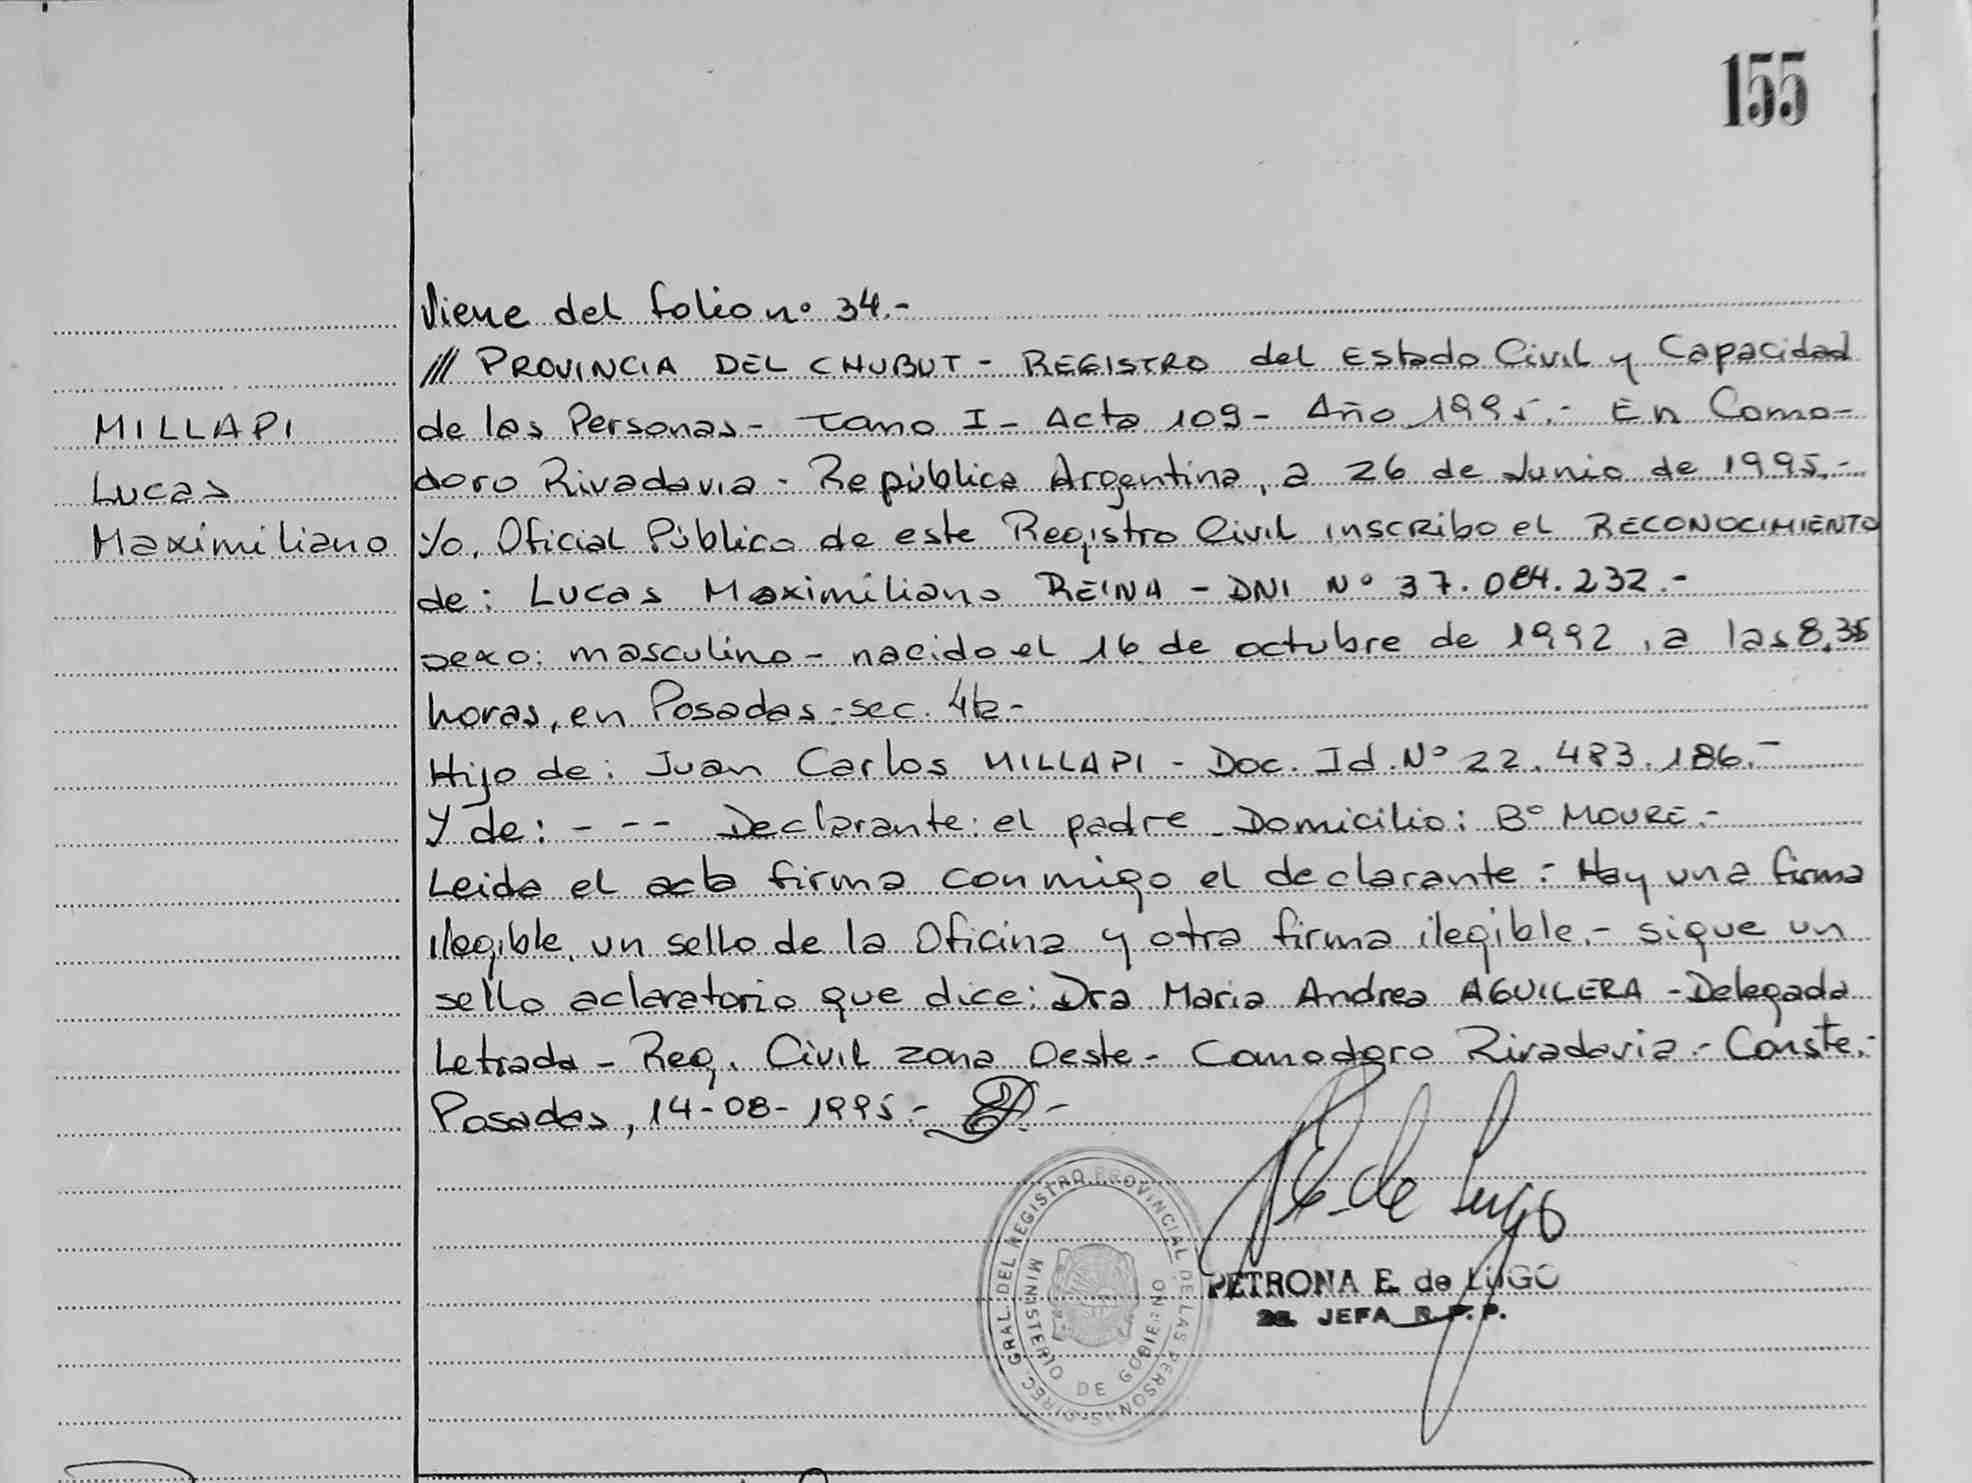 155
Viene del folio nº 34.-
/// PROVINCIA DEL CHUBUT - REGISTRO del Estado Civil y Capacidad
de las Personas - Tomo I - Acta 109 - Año 1995.- En Como-
doro Rivadavia - República Argentina, a 26 de Junio de 1995.-
Yo, Oficial Público de este Registro Civil inscribo el RECONOCIMIENTO
de: Lucas Maximiliano REINA - DNI Nº 37.084.232.-
sexo: masculino - nacido el 16 de octubre de 1992, a las 8,35
horas, en Posadas - sec. 4ta -
Hijo de: Juan Carlos MILLAPI - Doc. Id. Nº 22.483.186.-
Y de: - - - Declarante: el padre - Domicilio: Bº MOURE.-
Leida el acta firma conmigo el declarante: Hay una firma
ilegible, un sello de la Oficina y otra firma ilegible.- sigue un
sello aclaratorio que dice: Dra Maria Andrea AGUILERA - Delegada
Letrada - Reg. Civil zona Oeste - Comodoro Rivadavia - Conste.-
Posadas, 14-08-1995.-
MILLAPI
Lucas
Maximiliano
P. E. de Lugo
PETRONA E. de LUGO
2a. JEFA R.P.P.
DIREC. GRAL. DEL REGISTRO PROVINCIAL DE LAS PERSONAS
MINISTERIO DE GOBIERNO